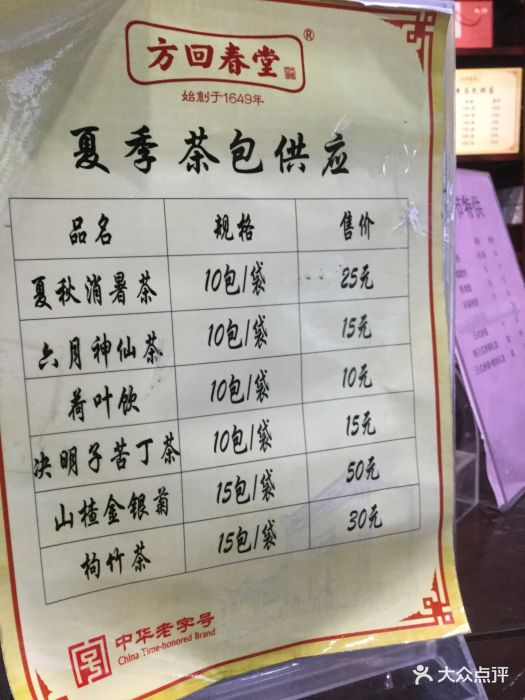 方回春堂®
始創于1649年
夏季茶包供应
品名 规格 售价
夏秋消暑茶 10包/袋 25元
六月神仙茶 10包/袋 15元
荷叶饮 10包/袋 10元
决明子苦丁茶 10包/袋 15元
山楂金银菊 15包/袋 50元
枸竹茶 15包/袋 30元
中华老字号
China Time-honored Brand
节特供
大众点评